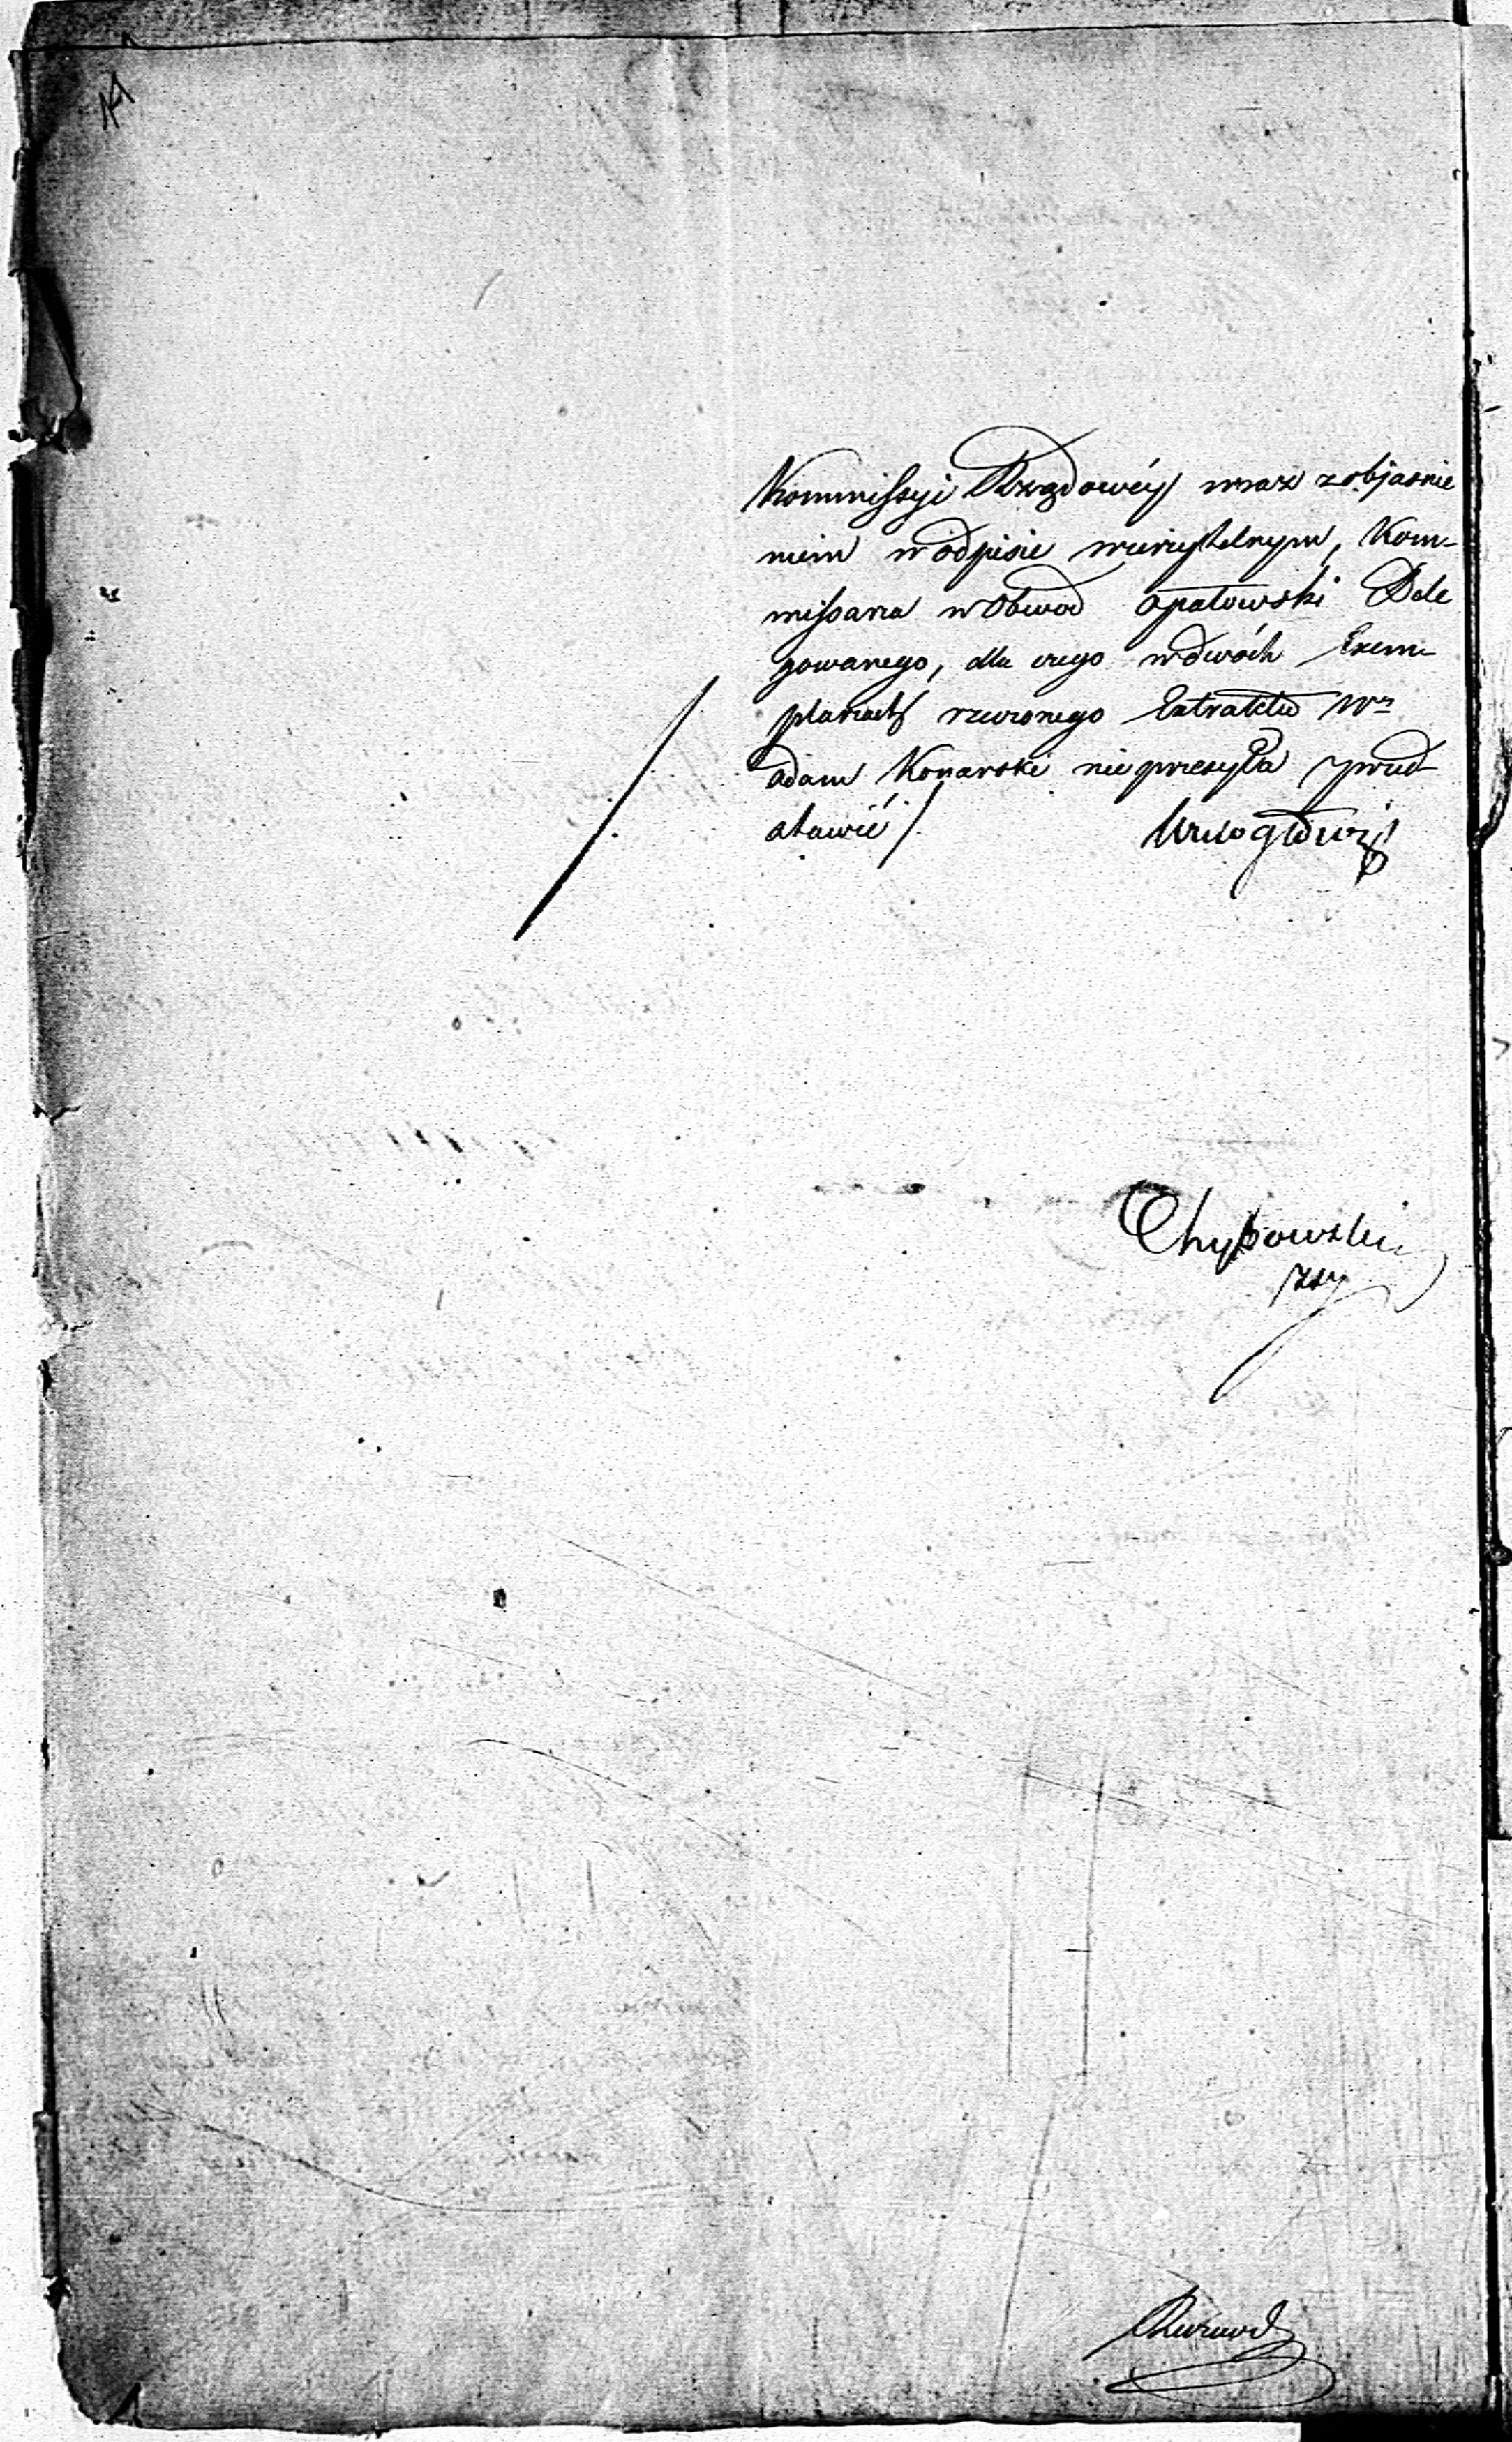 Kommissyi Rządowéy wraz z objasnie
niem w odpisie wierzytelnym, Kom-
missarza w Obwod Opatowski Dele
gowanego, dla czego w dwóch Exem-
plarzach rzeczonego Extraktu Wny
Adam Konarski nie przesyła / przed
stawić /.
Wielogłowski
Chybowski